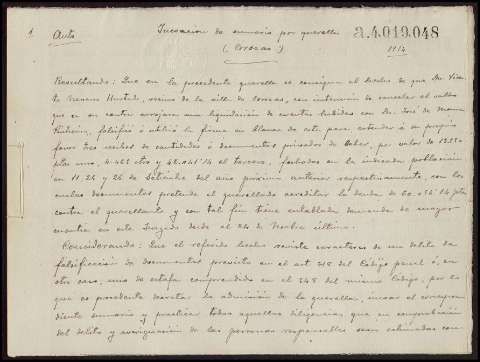 1 Auto Incoacion de sumario por querella a.4.019.048
(Corozas) 1914
Resultando: Que en la precedente querella se consigna el hecho de que Dn Vicen-
te Hurtado, vecino de la villa de con intención de cancelar el saldo
que en su contra arrojara una liquidación de cuentas habidas con Dn José de
falsificó ó utilizó la firma en blanco de este para extender á su propio
favor tres recibos de cantidades ó documentos privados de deber, por valor de
ptas uno, 4.462 otro y 42.041'14 el tercero, fechados en la indicada población
en 11, 24 y 26 de Setiembre del año próximo anterior respectivamente, con los
cuales documentos pretende el querellado acreditar la deuda de ptas
contra el querellante y con tal fin tiene entablada demanda de mayor
cuantia en este Juzgado desde el 24 de último.
Considerando: Que el referido hecho reviste caracteres de un delito de
falsificación de documentos previsto en el art 318 del Código penal ó, en
otro caso, uno de estafa comprendido en el 548 del mismo Código, por lo
que es procedente decretar la admisión de la querella, incoar el correspon-
diente sumario y practicar todas aquellas diligencias que en comprobación
del delito y averiguación de las personas responsables sean estimadas con-